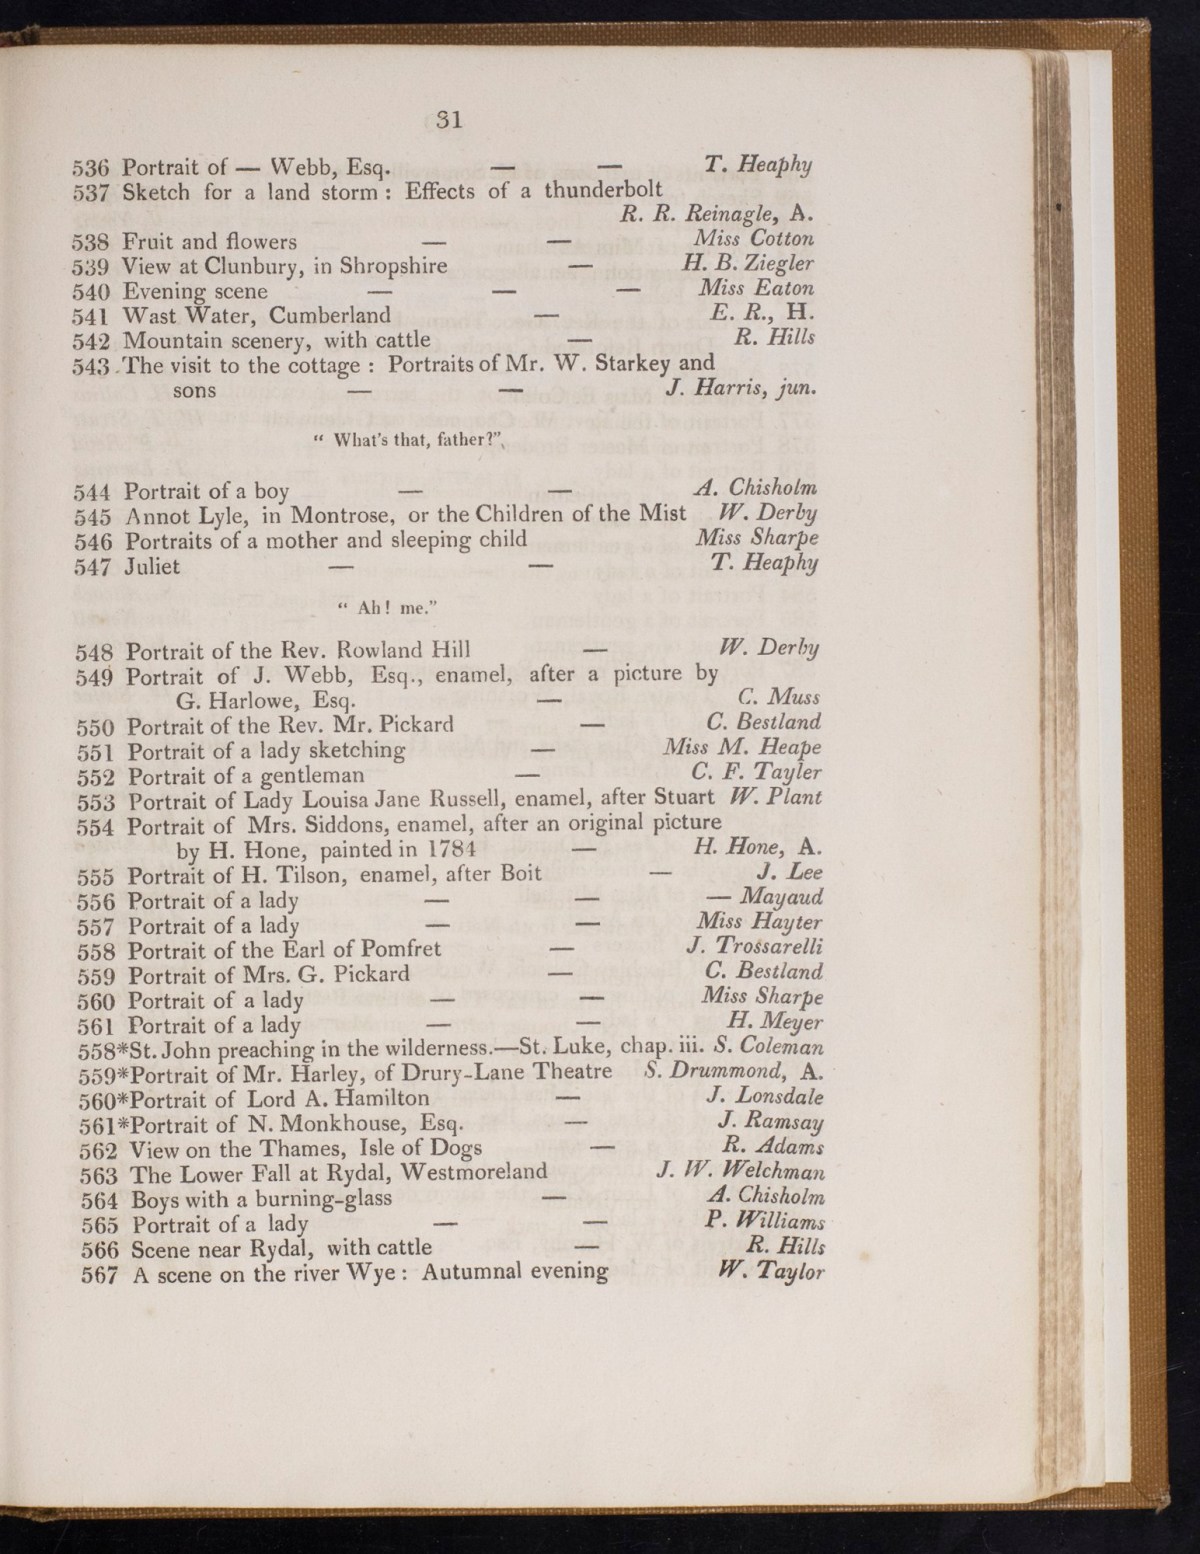 31
536 Portrait of — Webb, Esq. — — T. Heaphy
537 Sketch for a land storm : Effects of a thunderbolt
R. R. Reinagle, A.
538 Fruit and flowers — — Miss Cotton
539 View at Clunbury, in Shropshire — H. B. Ziegler
540 Evening scene — — — Miss Eaton
541 Wast Water, Cumberland — E. R., H.
542 Mountain scenery, with cattle — R. Hills
543 The visit to the cottage : Portraits of Mr. W. Starkey and
sons — — J. Harris, jun.
“ What's that, father?”
544 Portrait of a boy — — A. Chisholm
545 Annot Lyle, in Montrose, or the Children of the Mist W. Derby
546 Portraits of a mother and sleeping child Miss Sharpe
547 Juliet — — T. Heaphy
“ Ah! me.”
548 Portrait of the Rev. Rowland Hill — W. Derby
549 Portrait of J. Webb, Esq., enamel, after a picture by
G. Harlowe, Esq. — C. Muss
550 Portrait of the Rev. Mr. Pickard — C. Bestland
551 Portrait of a lady sketching — Miss M. Heape
552 Portrait of a gentleman — C. F. Tayler
553 Portrait of Lady Louisa Jane Russell, enamel, after Stuart W. Plant
554 Portrait of Mrs. Siddons, enamel, after an original picture
by H. Hone, painted in 1784 — H. Hone, A.
555 Portrait of H. Tilson, enamel, after Boit — J. Lee
556 Portrait of a lady — — — Mayaud
557 Portrait of a lady — — Miss Hayter
558 Portrait of the Earl of Pomfret — J. Trossarelli
559 Portrait of Mrs. G. Pickard — C. Bestland
560 Portrait of a lady — — Miss Sharpe
561 Portrait of a lady — — H. Meyer
558*St. John preaching in the wilderness.—St. Luke, chap. iii. S. Coleman
559*Portrait of Mr. Harley, of Drury-Lane Theatre S. Drummond, A.
560*Portrait of Lord A. Hamilton — J. Lonsdale
561*Portrait of N. Monkhouse, Esq. — J. Ramsay
562 View on the Thames, Isle of Dogs — R. Adams
563 The Lower Fall at Rydal, Westmoreland J. W. Welchman
564 Boys with a burning-glass — A. Chisholm
565 Portrait of a lady — — P. Williams
566 Scene near Rydal, with cattle — R. Hills
567 A scene on the river Wye : Autumnal evening W. Taylor